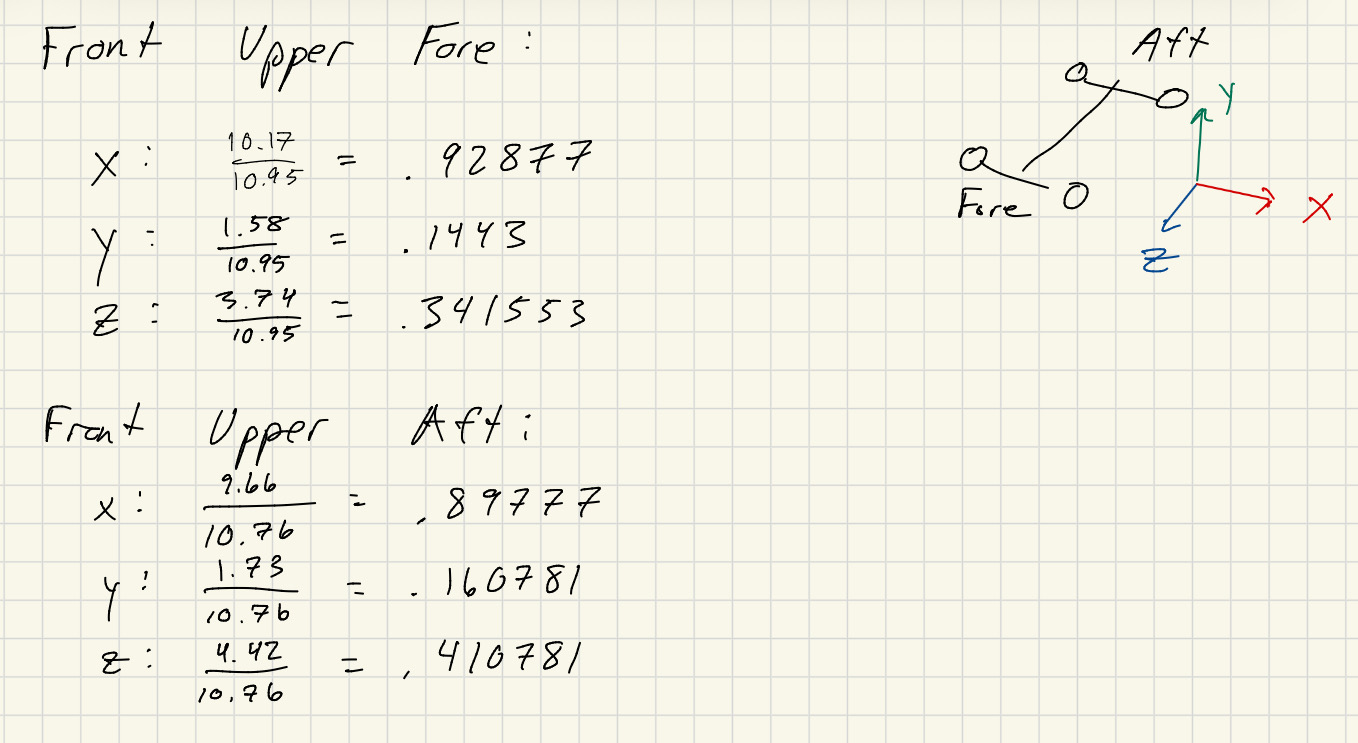 Front Upper Fore:
x: 10.17/10.95 = .92877
y: 1.58/10.95 = .1443
z: 3.74/10.95 = .341553
Front Upper Aft:
x: 9.66/10.76 = .89777
y: 1.73/10.76 = .160781
z: 4.42/10.76 = .410781
Aft
Y
Fore
X
Z